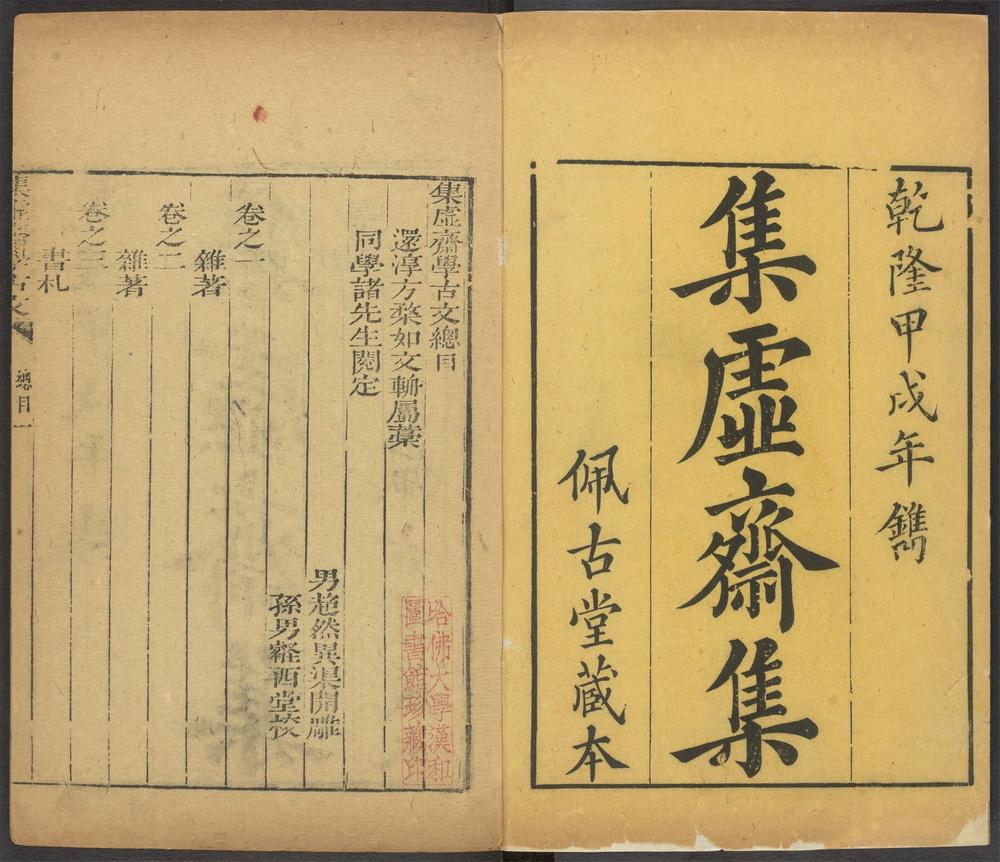 乾隆甲戌年鐫
集虛齋集
佩古堂藏本
集虛齋學古文總目
還淳方楘如文輈屬藁
同學諸先生閱定
男超然異渠開雕
孫男經西堂校
卷之一
雜著
卷之二
雜著
卷之三
書札
集虛齋學古文
總目
一
哈佛大學漢和
圖書館珍藏印